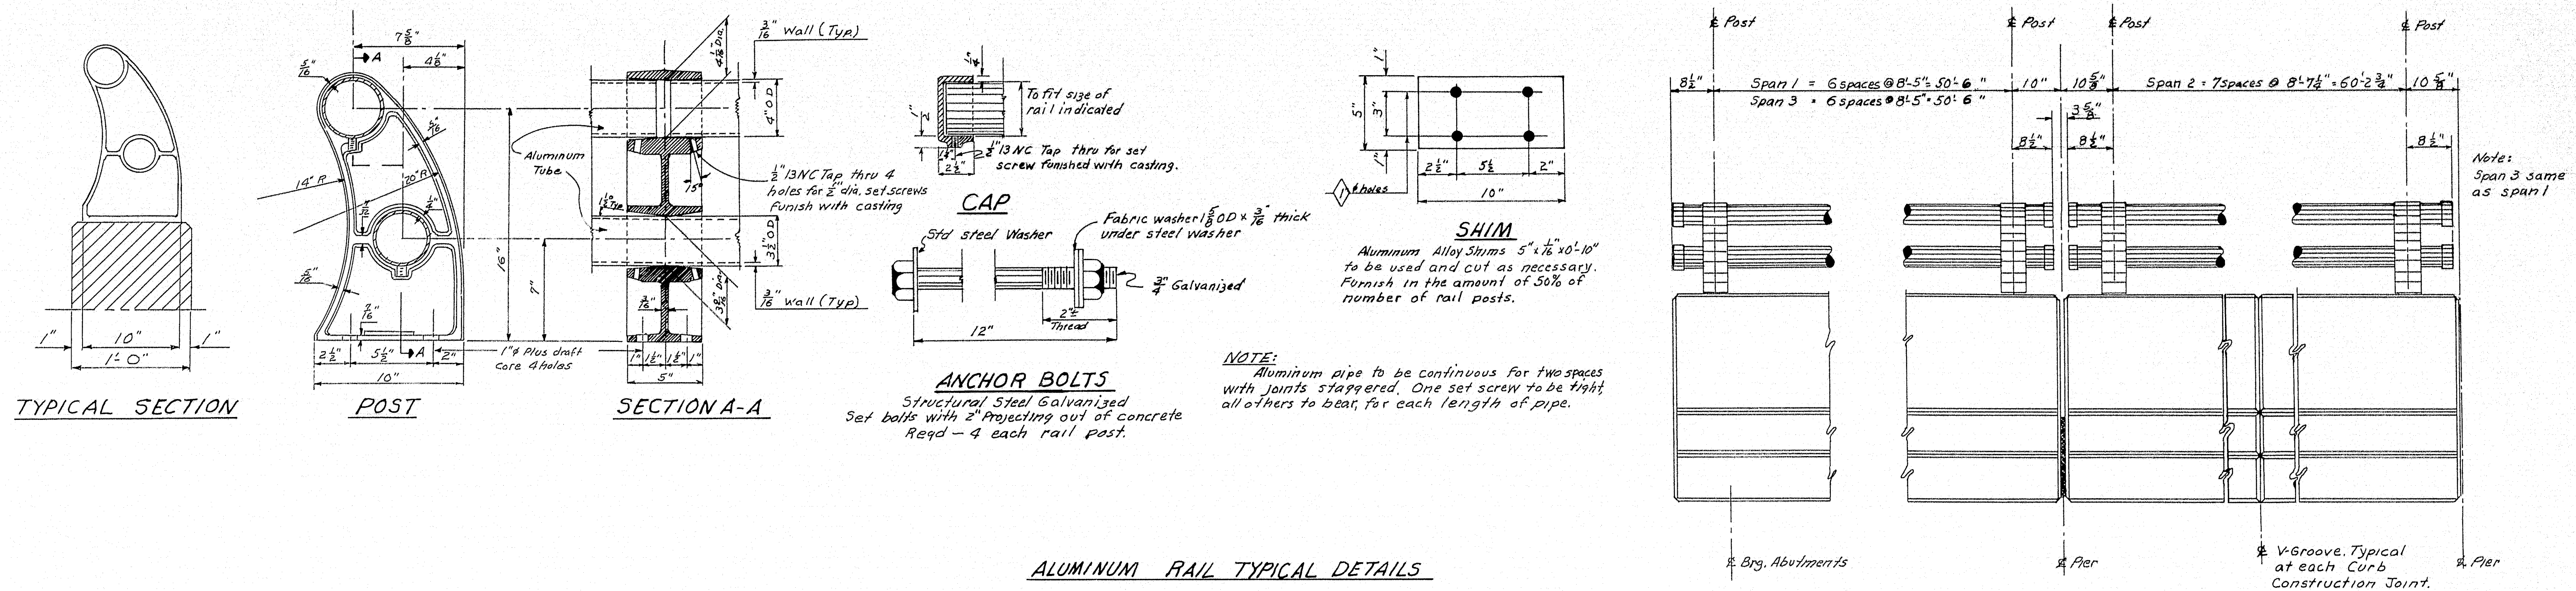 1"
10"
1"
1'-0"
TYPICAL SECTION
7 5/8"
A
4 1/8"
5/16"
5/16"
14" R
20" R
1/4"
5/16"
7/16"
16"
7"
2 1/2"
5 1/2"
A
2"
10"
1"ϕ Plus draft
core 4 holes
POST
3/16" Wall (Typ.)
4" O D
Aluminum
Tube
1/2" 13 NC Tap thru 4
holes for 1/2" dia. set screws
funish with casting
15°
1 1/2" Typ
3 1/2" O D
3/16" Wall (Typ)
3/16"
1"
1 1/2"
1 1/2"
1"
5"
SECTION A-A
1/4"
To fit size of
rail indicated
1/2"
1/2" 13 NC Tap thru for set
screw funished with casting.
2 1/2"
CAP
Std steel Washer
Fabric washer 1 5/8 OD x 3/16" thick
under steel washer
3/4" Galvanized
2"±
Thread
12"
ANCHOR BOLTS
Structural Steel Galvanized
Set bolts with 2" Projecting out of concrete
Reqd - 4 each rail post.
1"
5"
3"
1"
2 1/2"
5 1/2
2"
1 ϕ holes
10"
SHIM
Aluminum Alloy Shims 5" x 1/16" x 0'-10"
to be used and cut as necessary.
Furnish in the amount of 50% of
number of rail posts.
NOTE:
Aluminum pipe to be continuous for two spaces
with joints staggered. One set screw to be tight,
all others to bear, for each length of pipe.
ALUMINUM RAIL TYPICAL DETAILS
℄ Post
℄ Post
℄ Post
℄ Post
8 1/2"
Span 1 = 6 spaces @ 8'-5" = 50'-6"
10"
10 5/8"
Span 2 = 7 spaces @ 8'-7 1/4" = 60'-2 3/4"
10 5/8"
Span 3 = 6 spaces @ 8'-5" = 50'-6"
3 5/8"
8 1/2"
8 1/2"
8 1/2"
Note:
Span 3 same
as span 1
℄ Brg. Abutments
℄ Pier
℄ V-Groove. Typical
at each Curb
Construction Joint.
℄ Pier